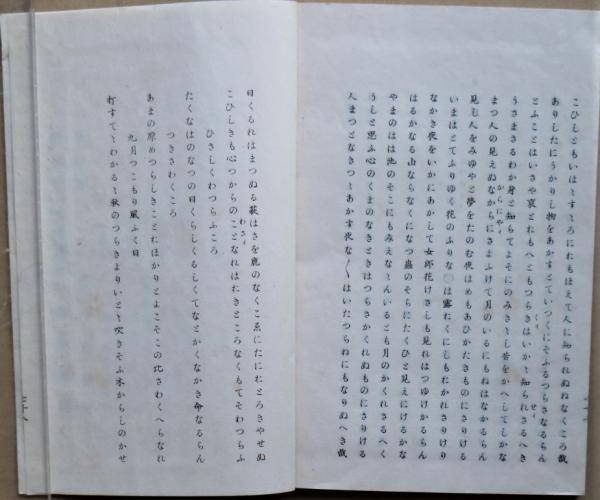 こひしともいはゝすゝろにおもほえて人に知られぬねなくころ哉
ありしたにうかりし物をあかすとていつくにそふるつらさなるらん
とふことはいさや哀とおもへともつらきはいかゝ知られさるへき
うさまさるわか身と知らてよそにのみきゝし昔をかへしてしかな
まつ人の見えぬなからにさまふけて月のいるにもねはなかるらん
見し人をみゆやと夢をたのむ夜はめもあひかたきものにさりける
いまはとてふりゆく花のふりな○は露おくにしもおかれさりけり
なかき夜をいかにあかして女郎花けさしも見れはつゆけかるらん
はるかなる山ならなくになつ蟲のそらにたくひと見えにけるかな
やまのはは池のそこにもみえなんいるとも月のかくれさるへく
うしと思ふ心のくまのなきときはつらさかくれぬものにさりける
人まつとなきつゝあかす夜な〱はいたつらねにもなりぬへき哉
日くるれはまつぬる萩はさを鹿のなくこゑにたにおとろきやせぬ
こひしきも心つからのことなれはおきところなくもてそわつらふ
ひさしくわつらふころ
たくなはのなつの日くらしくるしくてなとかくなかき命なるらん
つきさわくころ
あまの原めつらしきことおほかりとよこそこの比さわくへらなれ
九月つこもり風ふく日
打すてゝわかるゝ秋のつらきよりいとゝ吹きそふ木からしのかせ